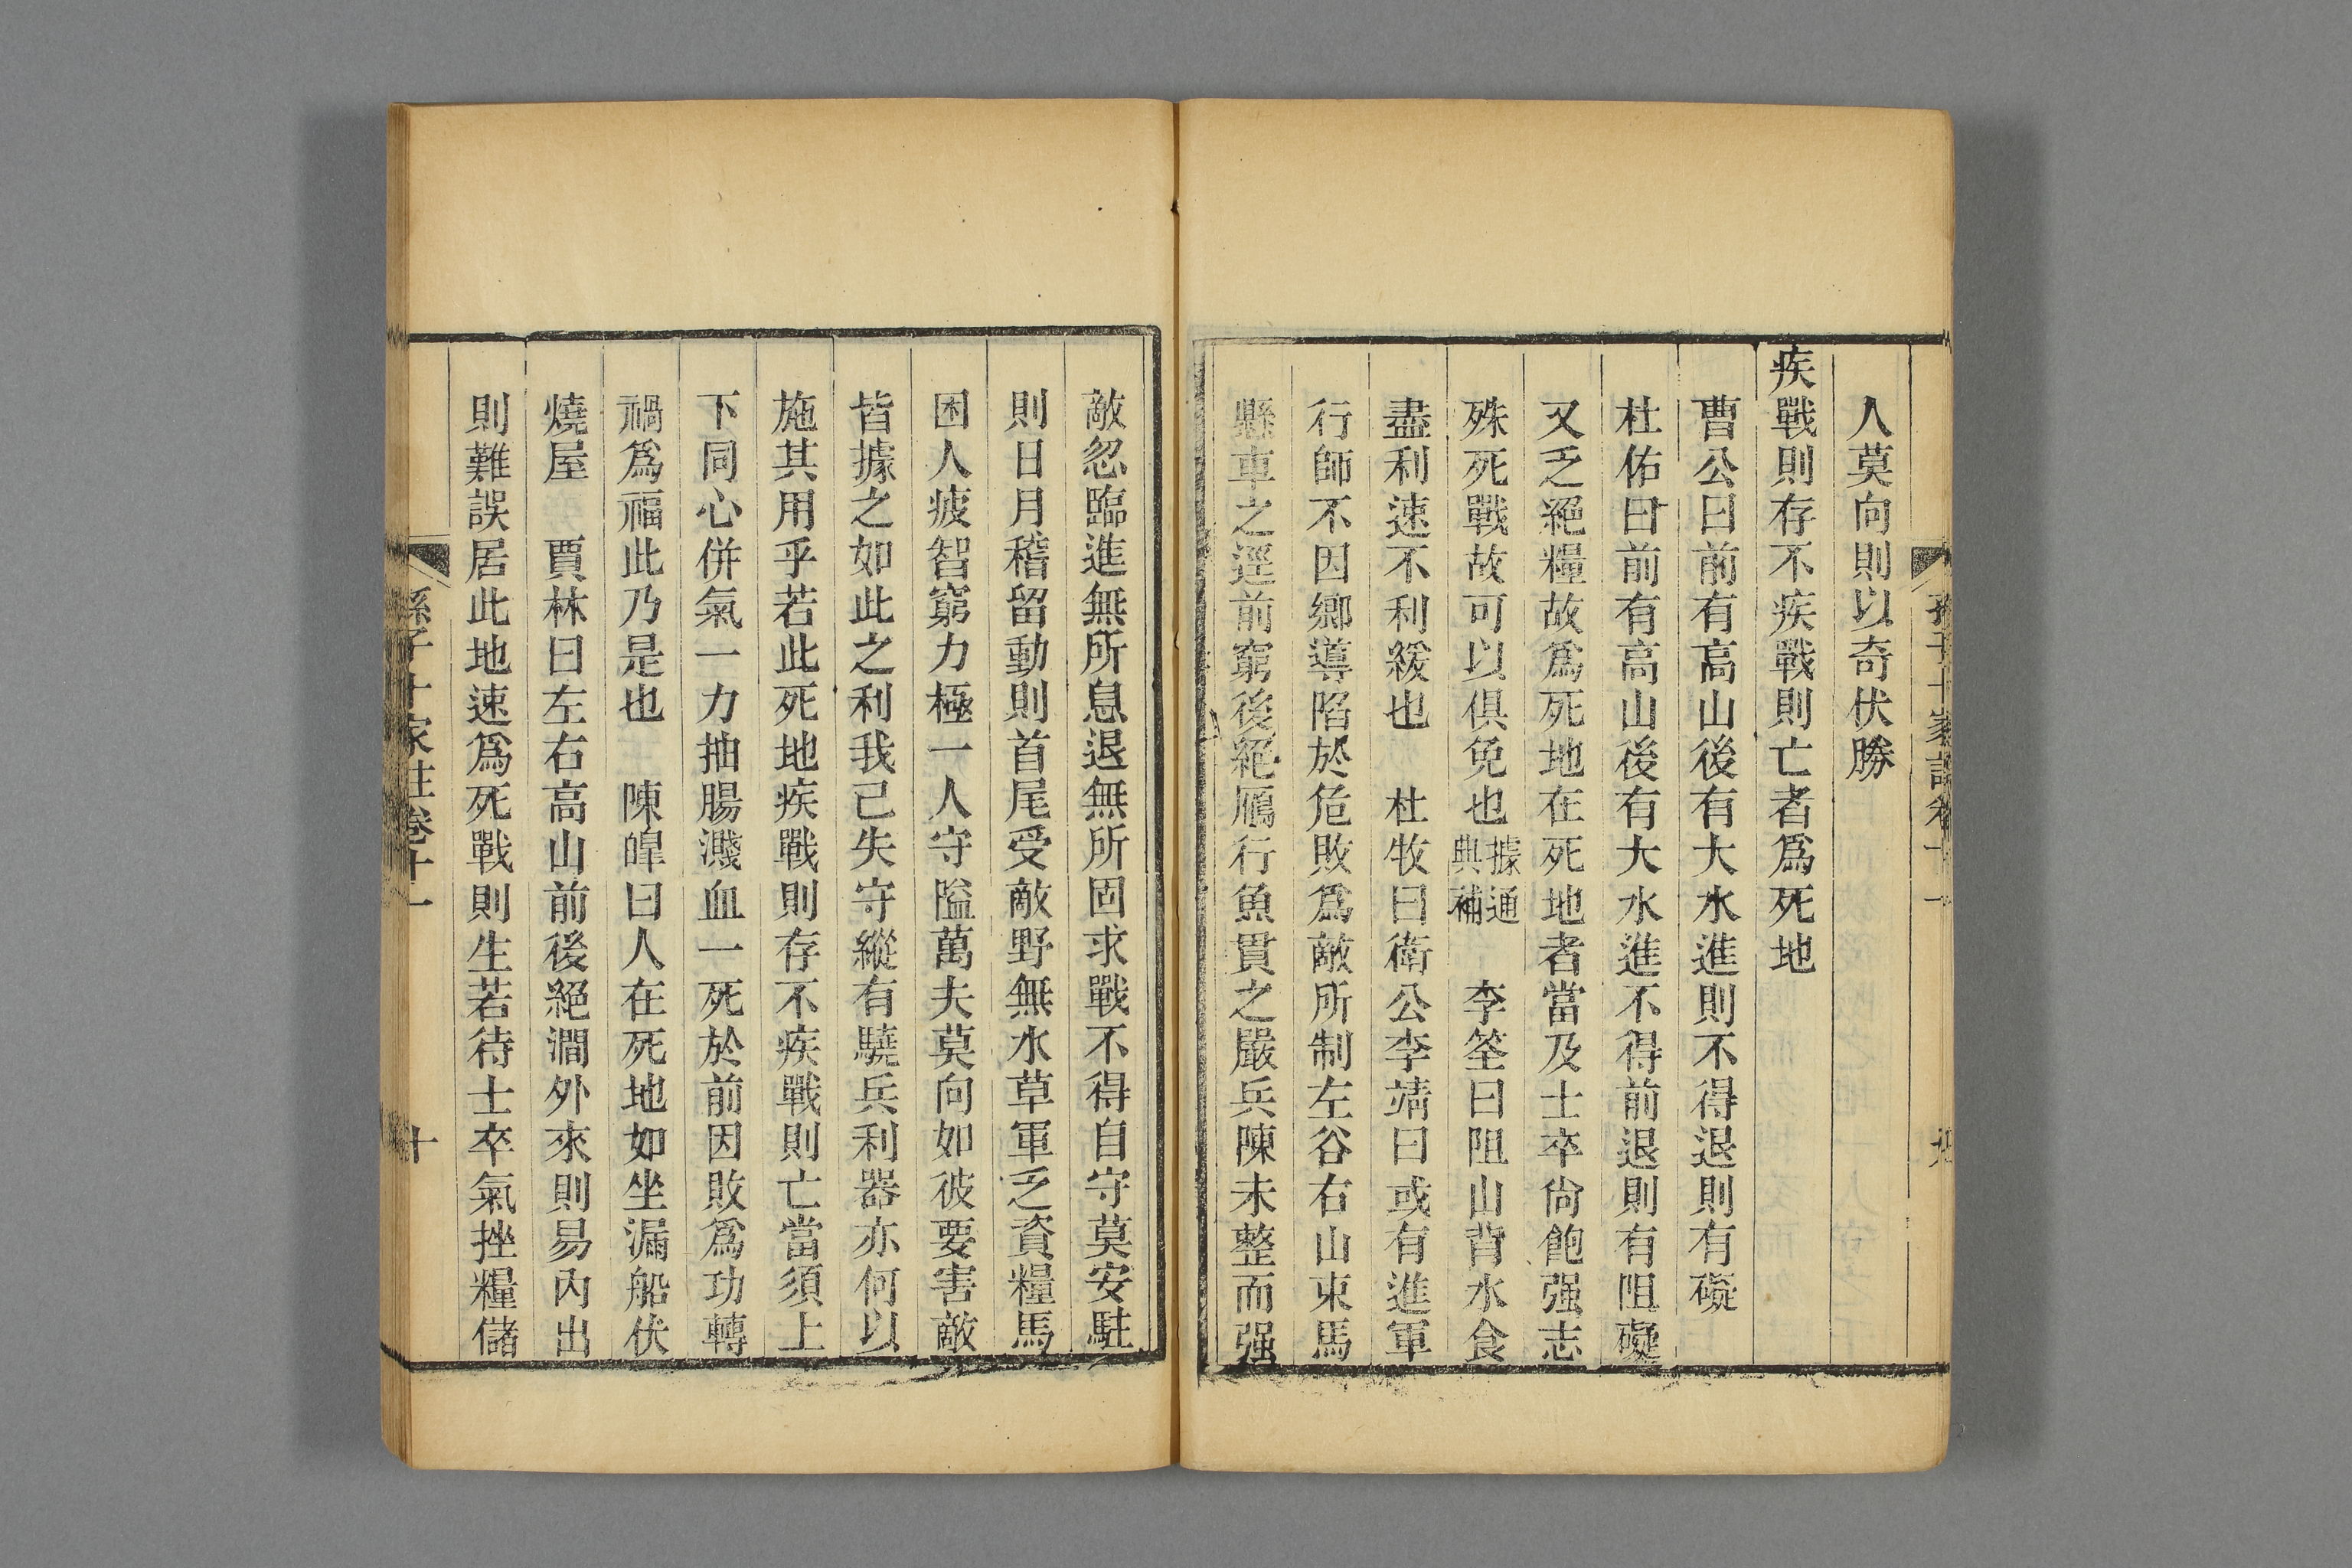 孫子十家註卷十一
人莫向則以奇伏勝
疾戰則存不疾戰則亡者爲死地
曹公曰前有高山後有大水進則不得退則有礙
杜佑曰前有高山後有大水進不得前退則有阻礙
又乏絕糧故爲死地在死地者當及士卒尙飽强志
殊死戰故可以俱免也據通典補 李筌曰阻山背水食
盡利速不利緩也 杜牧曰衛公李靖曰或有進軍
行師不因鄉導陷於危敗爲敵所制左谷右山束馬
懸車之逕前窮後絕鴈行魚貫之嚴兵陳未整而强
敵忽臨進無所息退無所固求戰不得自守莫安駐
則日月稽留動則首尾受敵野無水草軍乏資糧馬
困人疲智窮力極一人守隘萬夫莫向如彼要害敵
皆據之如此之利我已失守縱有驍兵利器亦何以
施其用乎若此死地疾戰則存不疾戰則亡當須上
下同心併氣一力抽腸濺血一死於前因敗爲功轉
禍爲福此乃是也 陳皥曰人在死地如坐漏船伏
燒屋 賈林曰左右高山前後絕澗外來則易內出
則難誤居此地速爲死戰則生若待士卒氣挫糧儲
孫子十家註卷十一 十